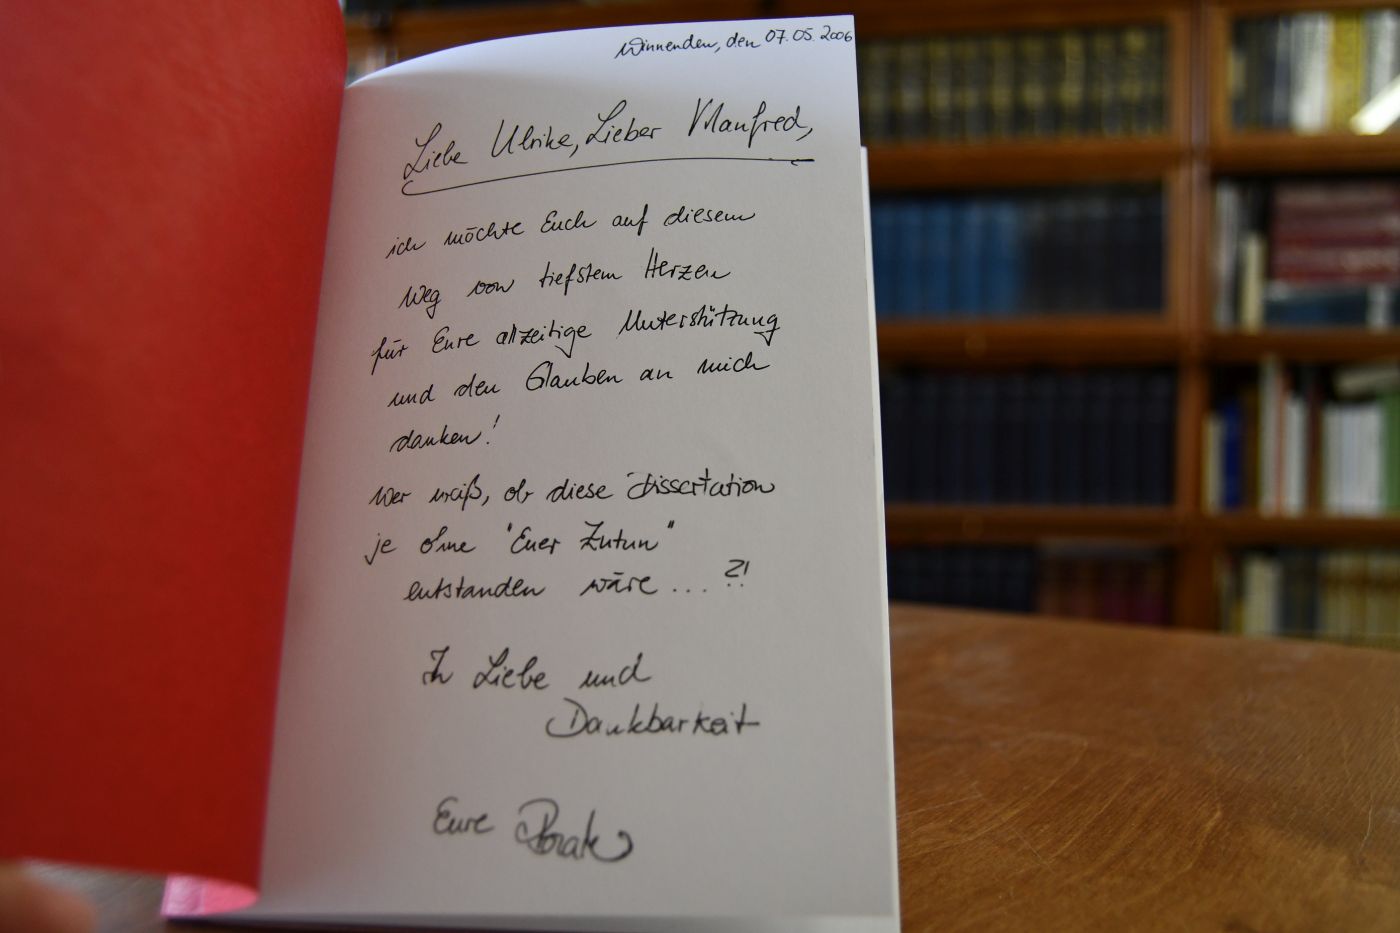 Winnenden, den 07.05.2006
Liebe Ulrike, Lieber Manfred,
ich möchte Euch auf diesem
Weg von tiefstem Herzen
für Eure allzeitige Unterstützung
und den Glauben an mich
danken!
Wer weiß, ob diese Dissertation
je ohne "Euer Zutun"
entstanden wäre ... ?!
In Liebe und
Dankbarkeit
Eure